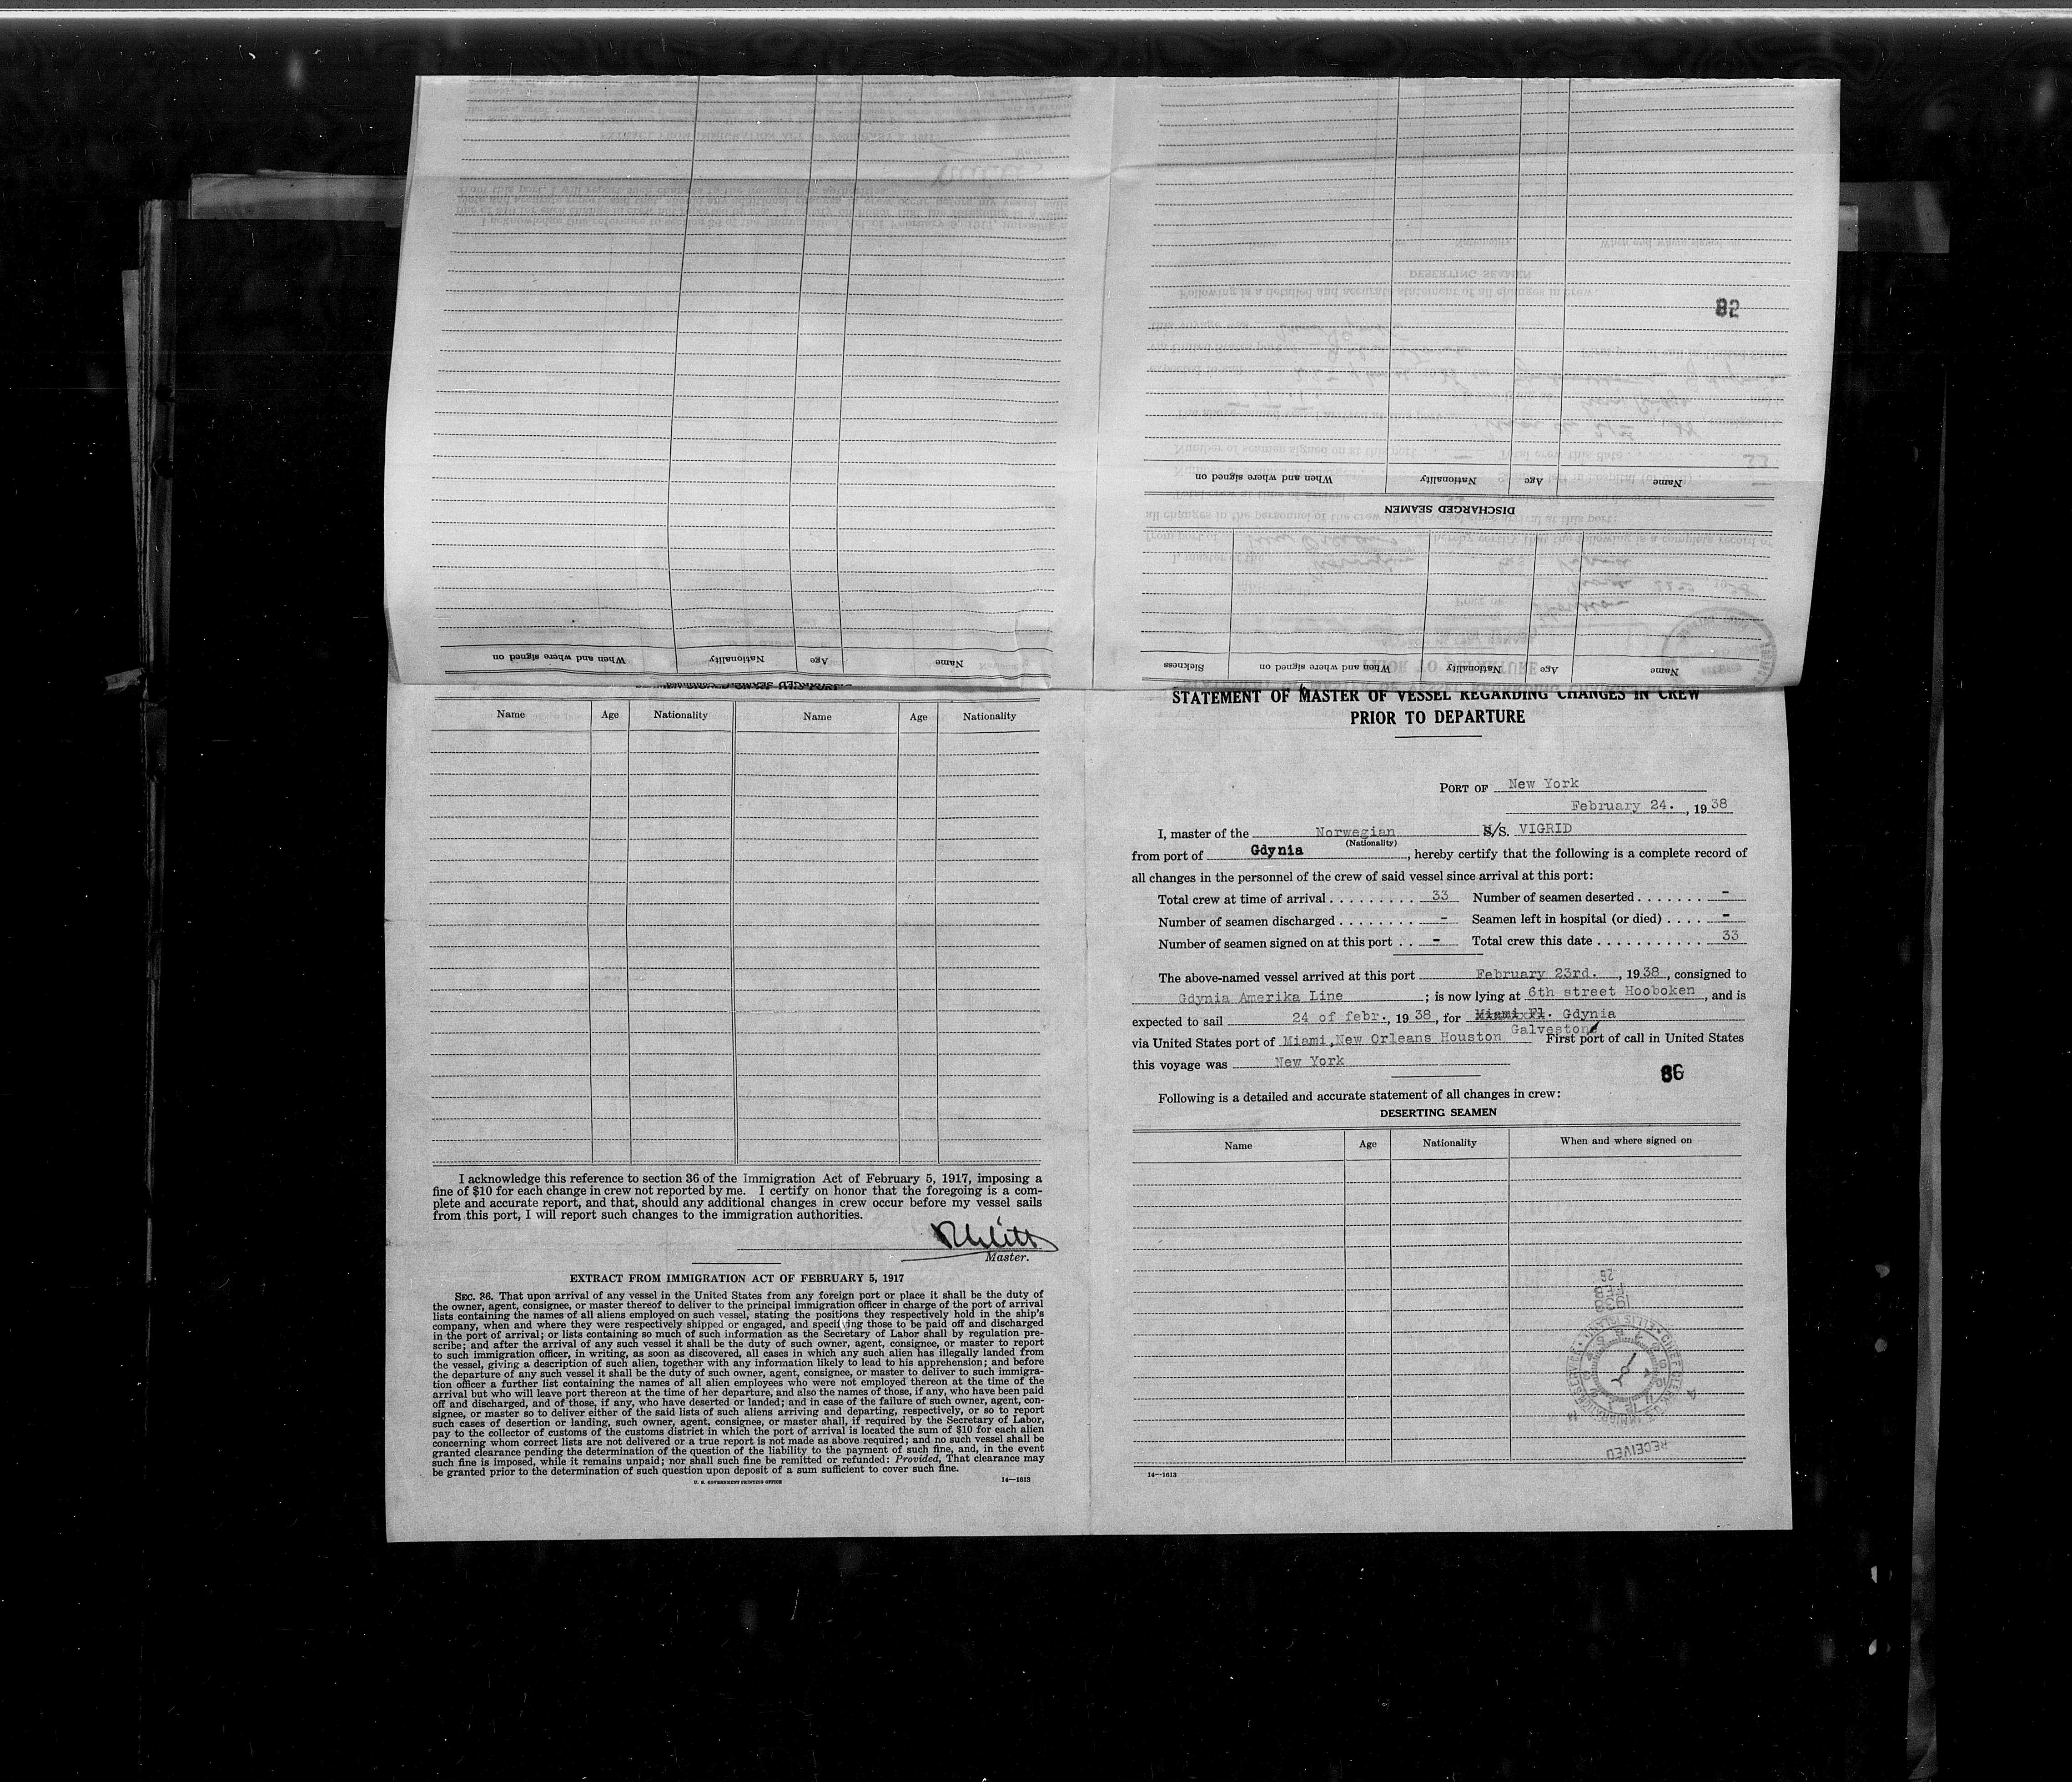 82
When and where signed on
Nationality
Age
Name
DISCHARGED SEAMEN
Name
Age
Nationality
When and where signed on
Sickness
Name
Age
Nationality
When and where signed on
Name Age Nationality Name Age Nationality
I acknowledge this reference to section 36 of the Immigration Act of February 5, 1917, imposing a
fine of $10 for each change in crew not reported by me. I certify on honor that the foregoing is a com-
plete and accurate report, and that, should any additional changes in crew occur before my vessel sails
from this port, I will report such changes to the immigration authorities.
Master.
EXTRACT FROM IMMIGRATION ACT OF FEBRUARY 5, 1917
SEC. 36. That upon arrival of any vessel in the United States from any foreign port or place it shall be the duty of
the owner, agent, consignee, or master thereof to deliver to the principal immigration officer in charge of the port of arrival
lists containing the names of all aliens employed on such vessel, stating the positions they respectively hold in the ship's
company, when and where they were respectively shipped or engaged, and specifying those to be paid off and discharged
in the port of arrival; or lists containing so much of such information as the Secretary of Labor shall by regulation pre-
scribe; and after the arrival of any such vessel it shall be the duty of such owner, agent, consignee, or master to report
to such immigration officer, in writing, as soon as discovered, all cases in which any such alien has illegally landed from
the vessel, giving a description of such alien, together with any information likely to lead to his apprehension; and before
the departure of any such vessel it shall be the duty of such owner, agent, consignee, or master to deliver to such immigra-
tion officer a further list containing the names of all alien employees who were not employed thereon at the time of the
arrival but who will leave port thereon at the time of her departure, and also the names of those, if any, who have been paid
off and discharged, and of those, if any, who have deserted or landed; and in case of the failure of such owner, agent, con-
signee, or master so to deliver either of the said lists of such aliens arriving and departing, respectively, or so to report
such cases of desertion or landing, such owner, agent, consignee, or master shall, if required by the Secretary of Labor,
pay to the collector of customs of the customs district in which the port of arrival is located the sum of $10 for each alien
concerning whom correct lists are not delivered or a true report is not made as above required; and no such vessel shall be
granted clearance pending the determination of the question of the liability to the payment of such fine, and, in the event
such fine is imposed, while it remains unpaid; nor shall such fine be remitted or refunded: Provided, That clearance may
be granted prior to the determination of such question upon deposit of a sum sufficient to cover such fine.
U. S. GOVERNMENT PRINTING OFFICE 14—1613
STATEMENT OF MASTER OF VESSEL REGARDING CHANGES IN CREW
PRIOR TO DEPARTURE
PORT OF New York
February 24. , 1938
I, master of the Norwegian M/S. VIGRID
(Nationality)
from port of Gdynia, hereby certify that the following is a complete record of
all changes in the personnel of the crew of said vessel since arrival at this port:
Total crew at time of arrival . . . . . . . . . 33 Number of seamen deserted . . . . . . . -
Number of seamen discharged . . . . . . . . - Seamen left in hospital (or died) . . . . -
Number of seamen signed on at this port . . - Total crew this date . . . . . . . . . . . 33
The above-named vessel arrived at this port February 23rd. , 1938, consigned to
Gdynia Amerika Line ; is now lying at 6th street Hooboken, and is
expected to sail 24 of febr., 1938, for Miami Fl. Gdynia
Galveston
via United States port of Miami,New Orleans Houston First port of call in United States
this voyage was New York
86
Following is a detailed and accurate statement of all changes in crew:
DESERTING SEAMEN
Name Age Nationality When and where signed on
26
FEB
1938
RECEIVED
14—1613